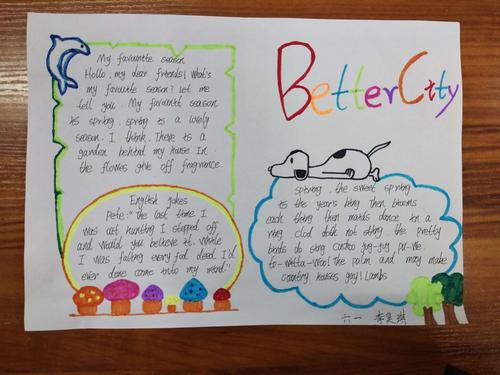 My favourite season
Hello, my dear friends! What's
my favourite season? Let me
tell you. My favourit season
is spring. spring is a lovely
season. I think. There is a
garden behind my house. In
the flowers give off fragrance.
English jokes
Pete: "The last time I
was out hunting I stepped off
and would you believe it. While
I was falling every fool deed I'd
ever done came into my mind."
Better City
spring, the sweet spring
is the year's king then blooms
each thing then maids dance in a
ring. clod doth not sting the pretty
birds do sing cuckoo jug-jug pu-we.
to-witta-woo! The palm and may make
country houses gay! Lambs
六一 李